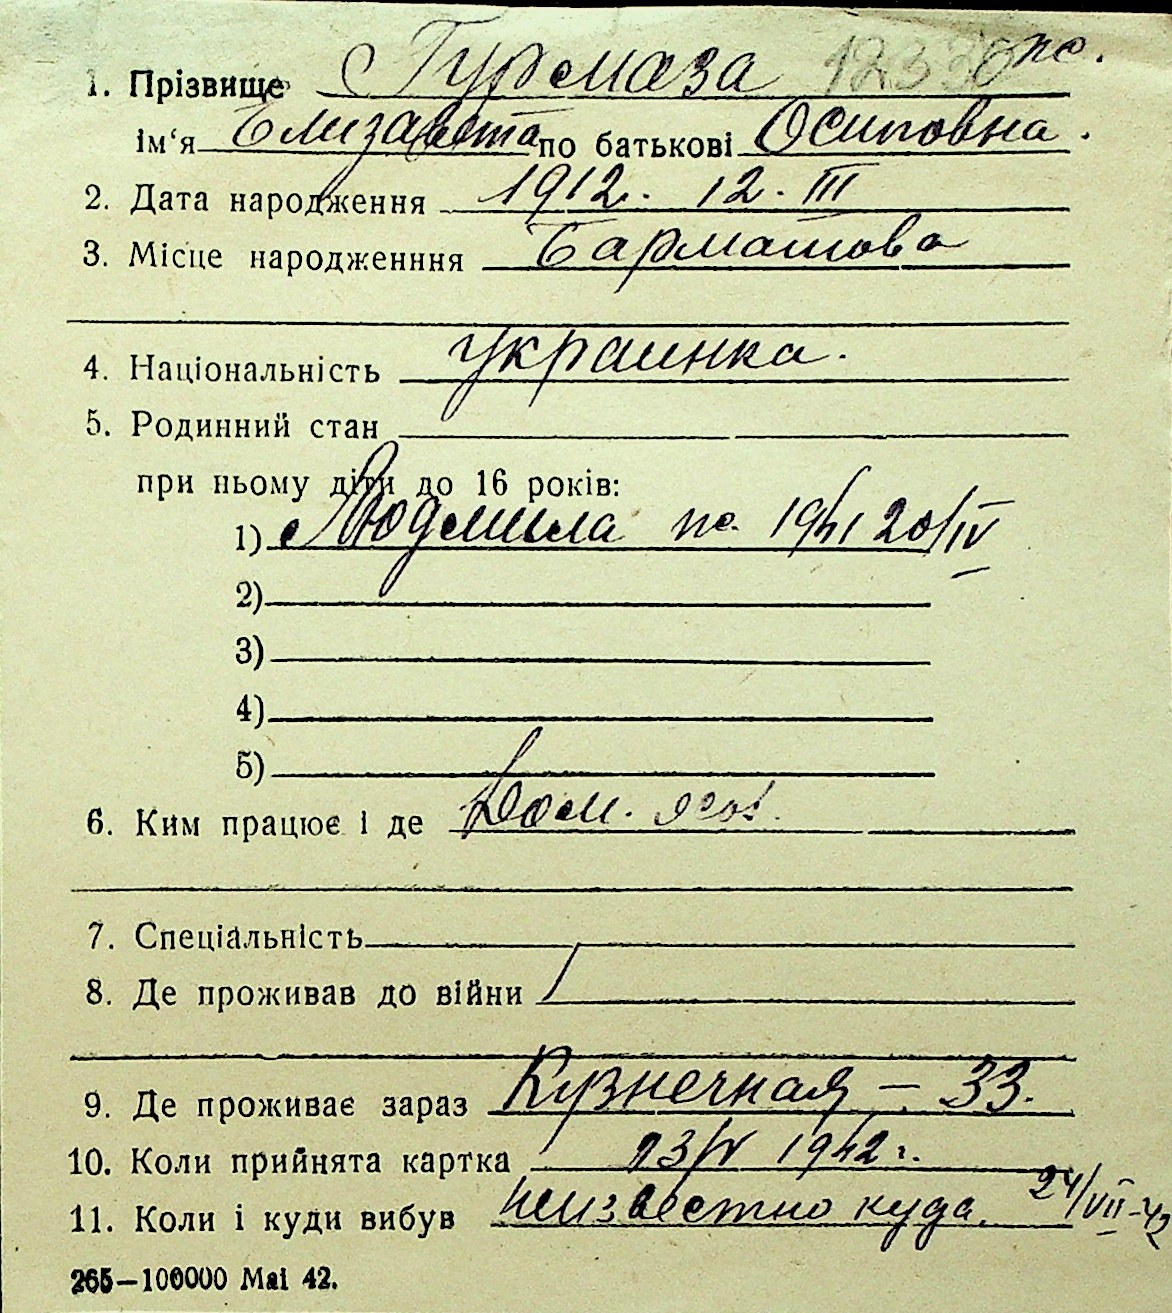 1. Прізвище Гурмаза 12330 пс.
ім‘я Елизавета по батькові Осиповна.
2. Дата народження 1912. 12. III
3. Місце народженння Барматова
4. Національність украинка.
5. Родинний стан
при ньому діти до 16 років:
1) Людмила пс. 1941 20/IV
2)
3)
4)
5)
6. Ким працює і де Дом.
7. Спеціальність
8. Де проживав до війни /
9. Де проживає зараз Кузнечная – 33.
10. Коли прийнята картка 1942 г.
11. Коли і куди вибув неизвестно куда 24/VII-42
265—100000 Mai 42.